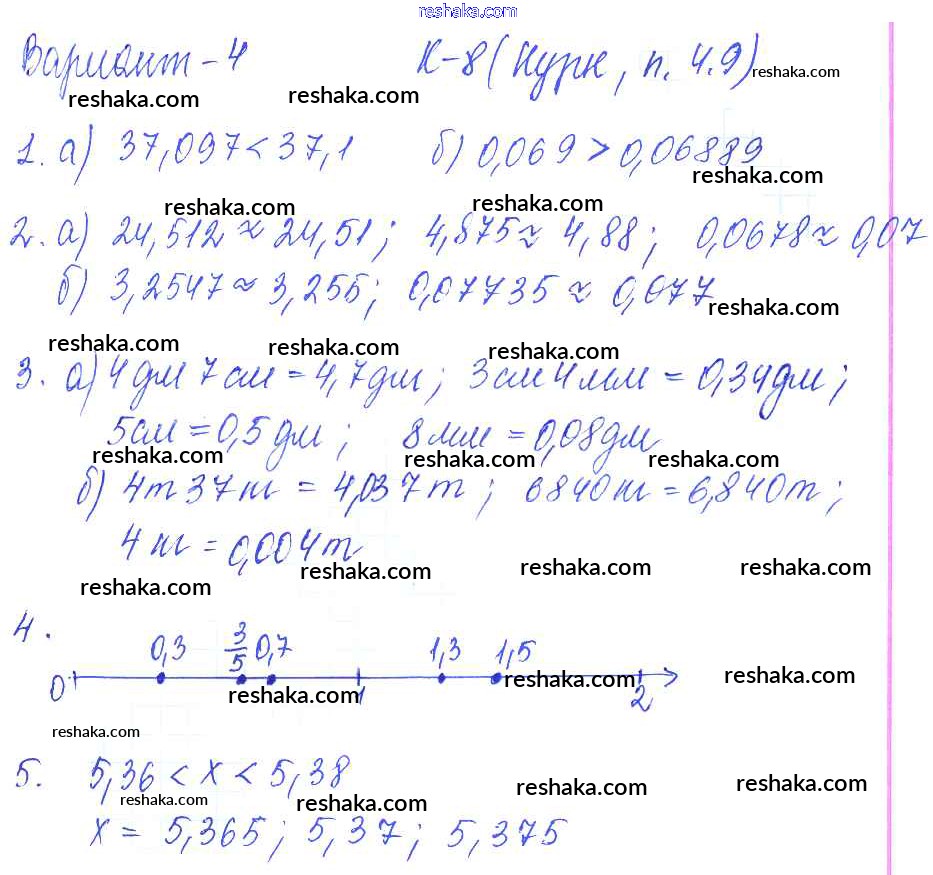 reshaka.com
Вариант-4 К-8 (Нурк, п. 4.9) reshaka.com
reshaka.com reshaka.com
1. а) 37,097 < 37,1 б) 0,069 > 0,06889
reshaka.com
reshaka.com reshaka.com
2. а) 24,512 ≈ 24,51; 4,875 ≈ 4,88; 0,0678 ≈ 0,07
б) 3,2547 ≈ 3,255; 0,07735 ≈ 0,077
reshaka.com
reshaka.com reshaka.com reshaka.com
3. а) 4 дм 7 см = 4,7 дм; 3 см 4 мм = 0,34 дм;
5 см = 0,5 дм; 8 мм = 0,08 дм
reshaka.com reshaka.com reshaka.com
б) 4т 37кг = 4,037т; 6840кг = 6,840т;
4 кг = 0,004т
reshaka.com reshaka.com reshaka.com reshaka.com
4.
0,3 3/5 0,7 1,3 1,5
0 1 2
reshaka.com reshaka.com reshaka.com
reshaka.com
5. 5,36 < x < 5,38
reshaka.com reshaka.com reshaka.com reshaka.com
x = 5,365; 5,37; 5,375